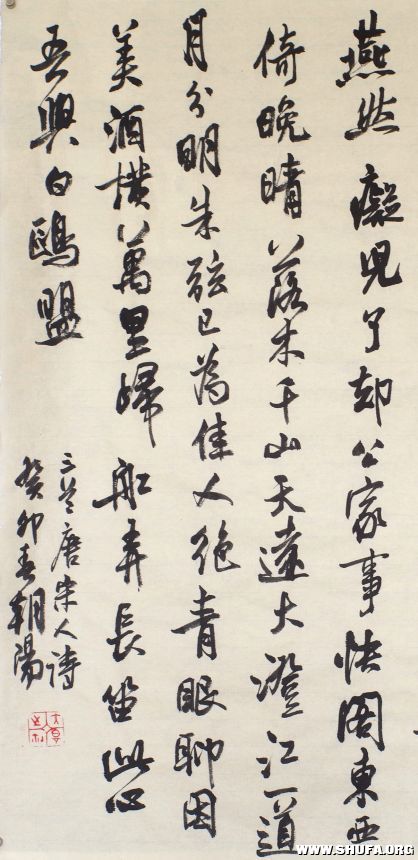 燕然 癡兒了却公家事快閣東西
倚晚晴落木千山天遠大澄江一道
月分明朱弦已為佳人絕青眼聊因
美酒橫萬里歸船弄長笛此心
吾與白鷗盟
三首唐宋人詩
癸卯春朝陽
WWW.SHUFA.ORG